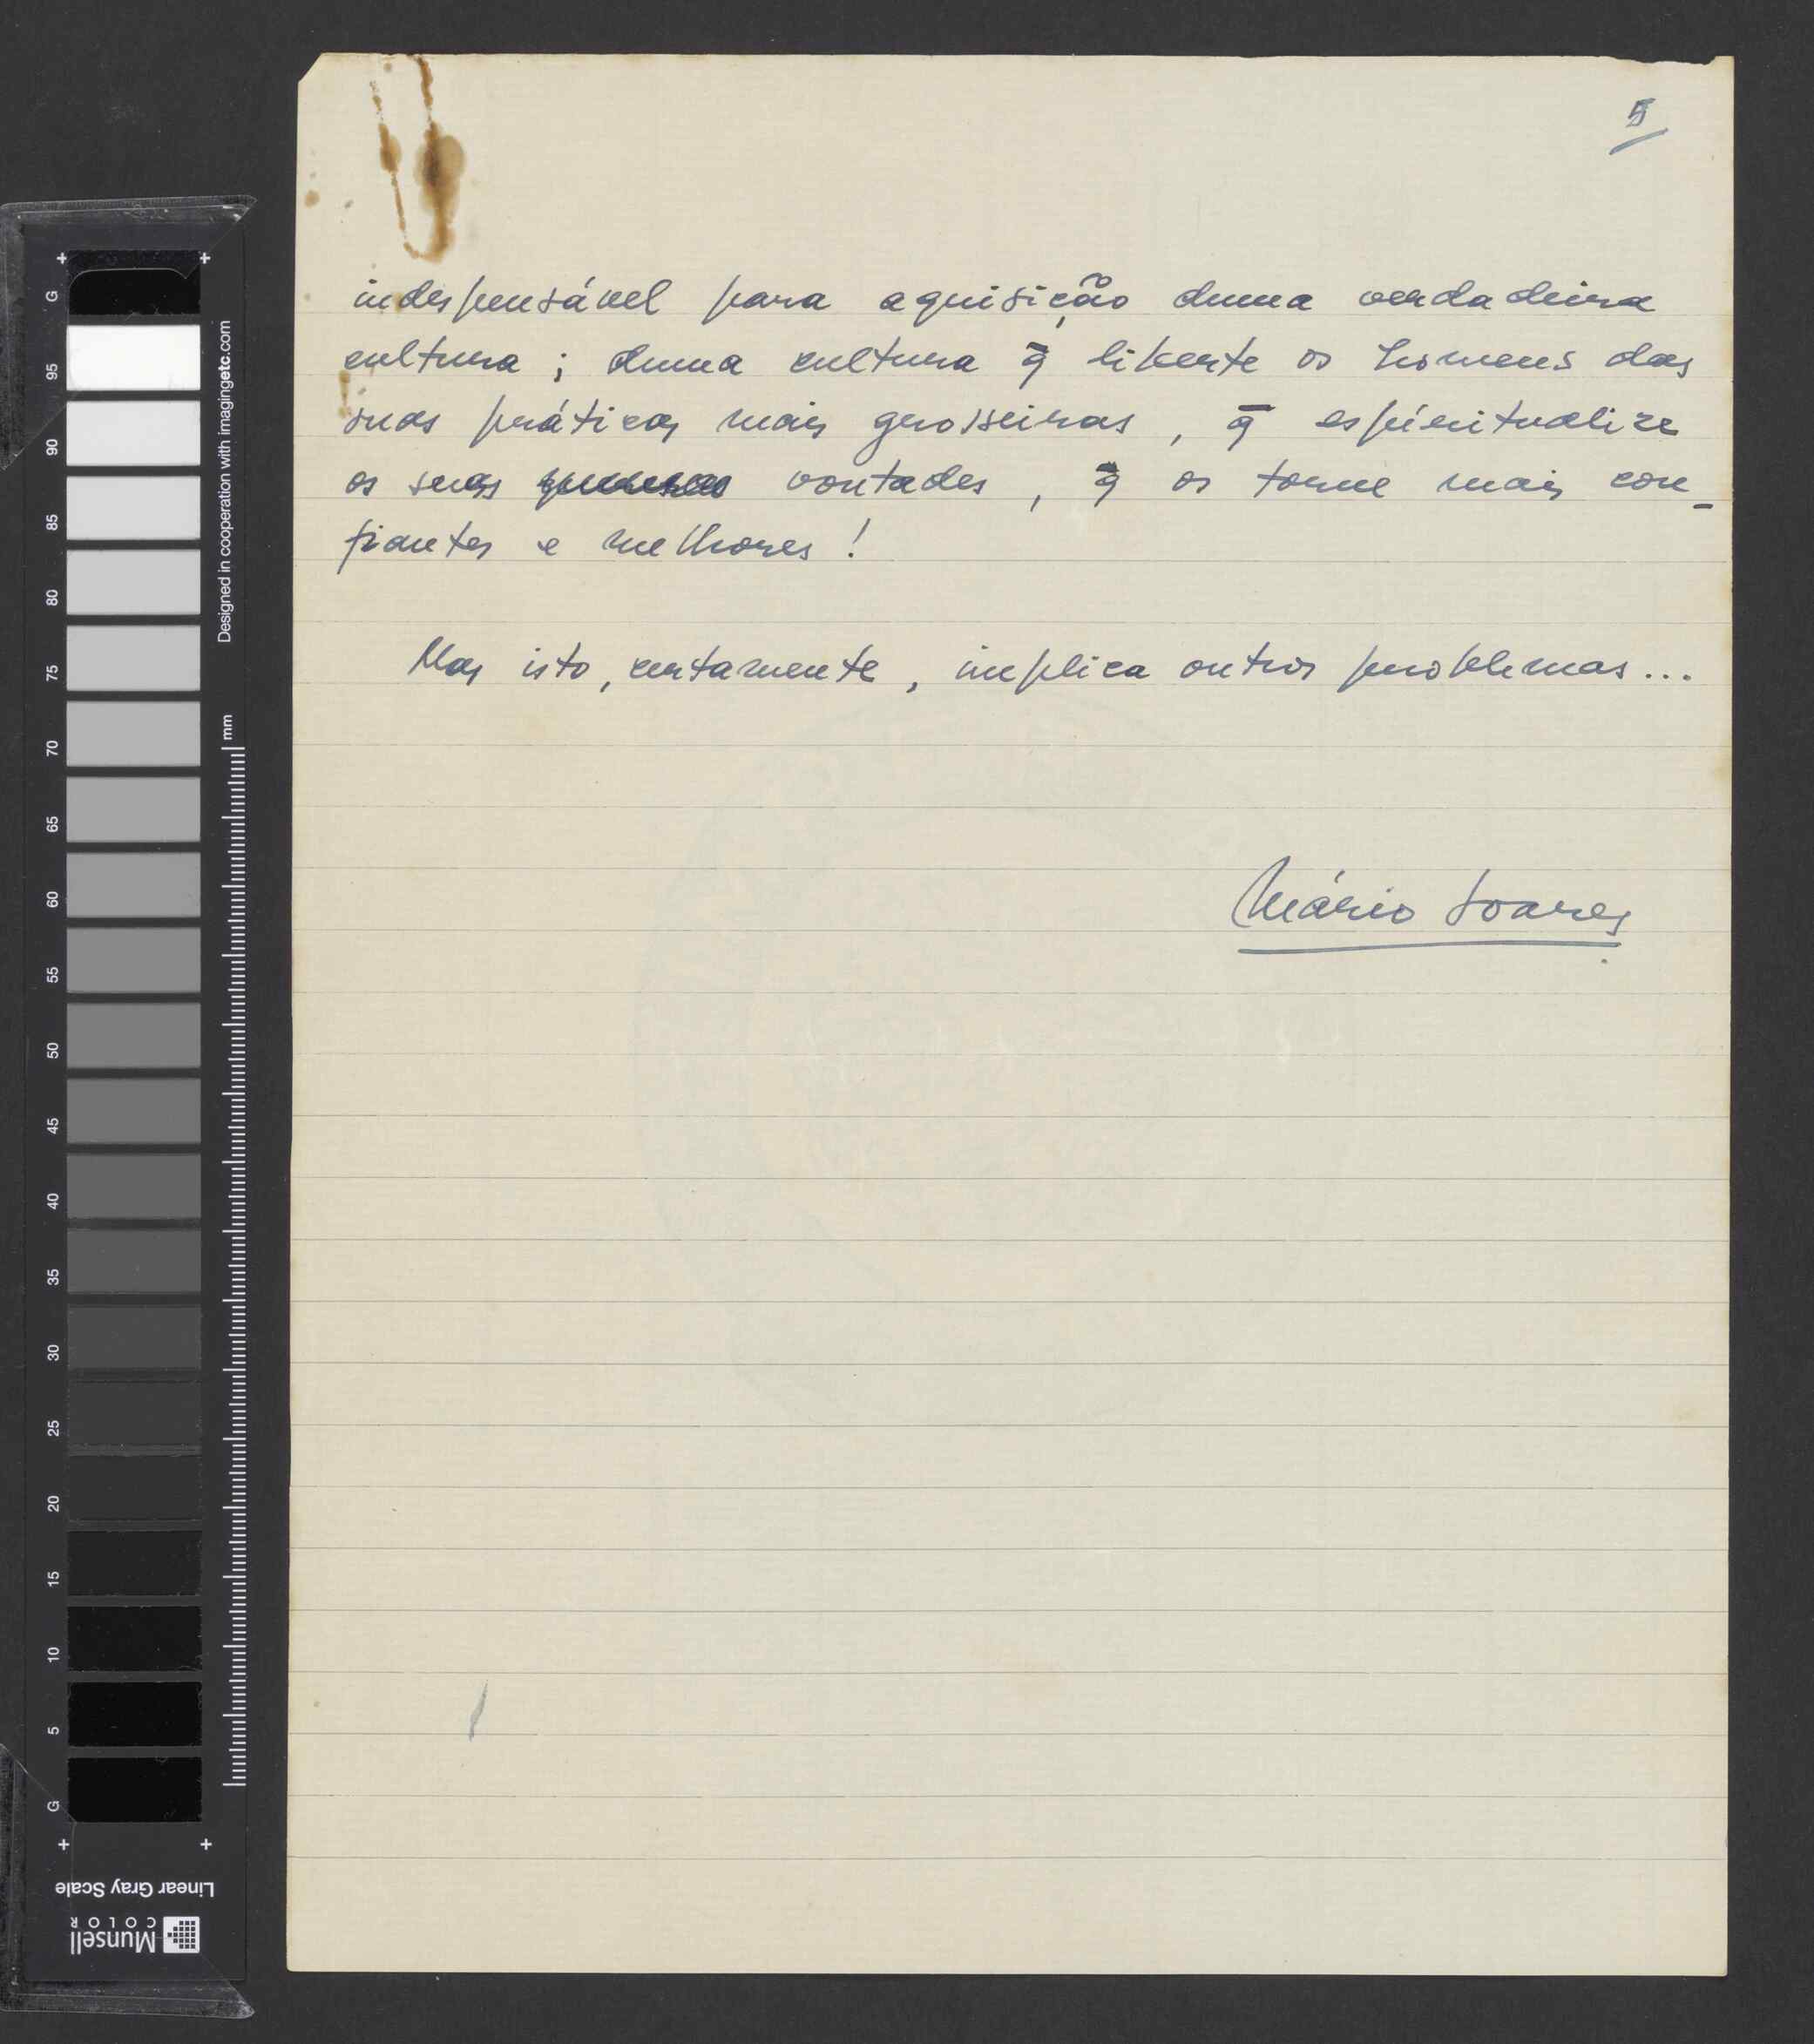 5
indespensável para aquisição duma verdadeira
cultura ; duma cultura q̄ liberte os homens das
suas práticas mais grosseiras , q̄ espiritualize
as suas vontades , q̄ os torne mais con-
fiantes e melhores !
Mas isto, certamente , implica outros problemas...
Mário Soares
G
95
90
85
80
75
70
65
60
55
50
45
40
35
30
25
20
15
10
5
G
Designed in cooperation with imagingetc.com
mm
Linear Gray Scale
Munsell
COLOR